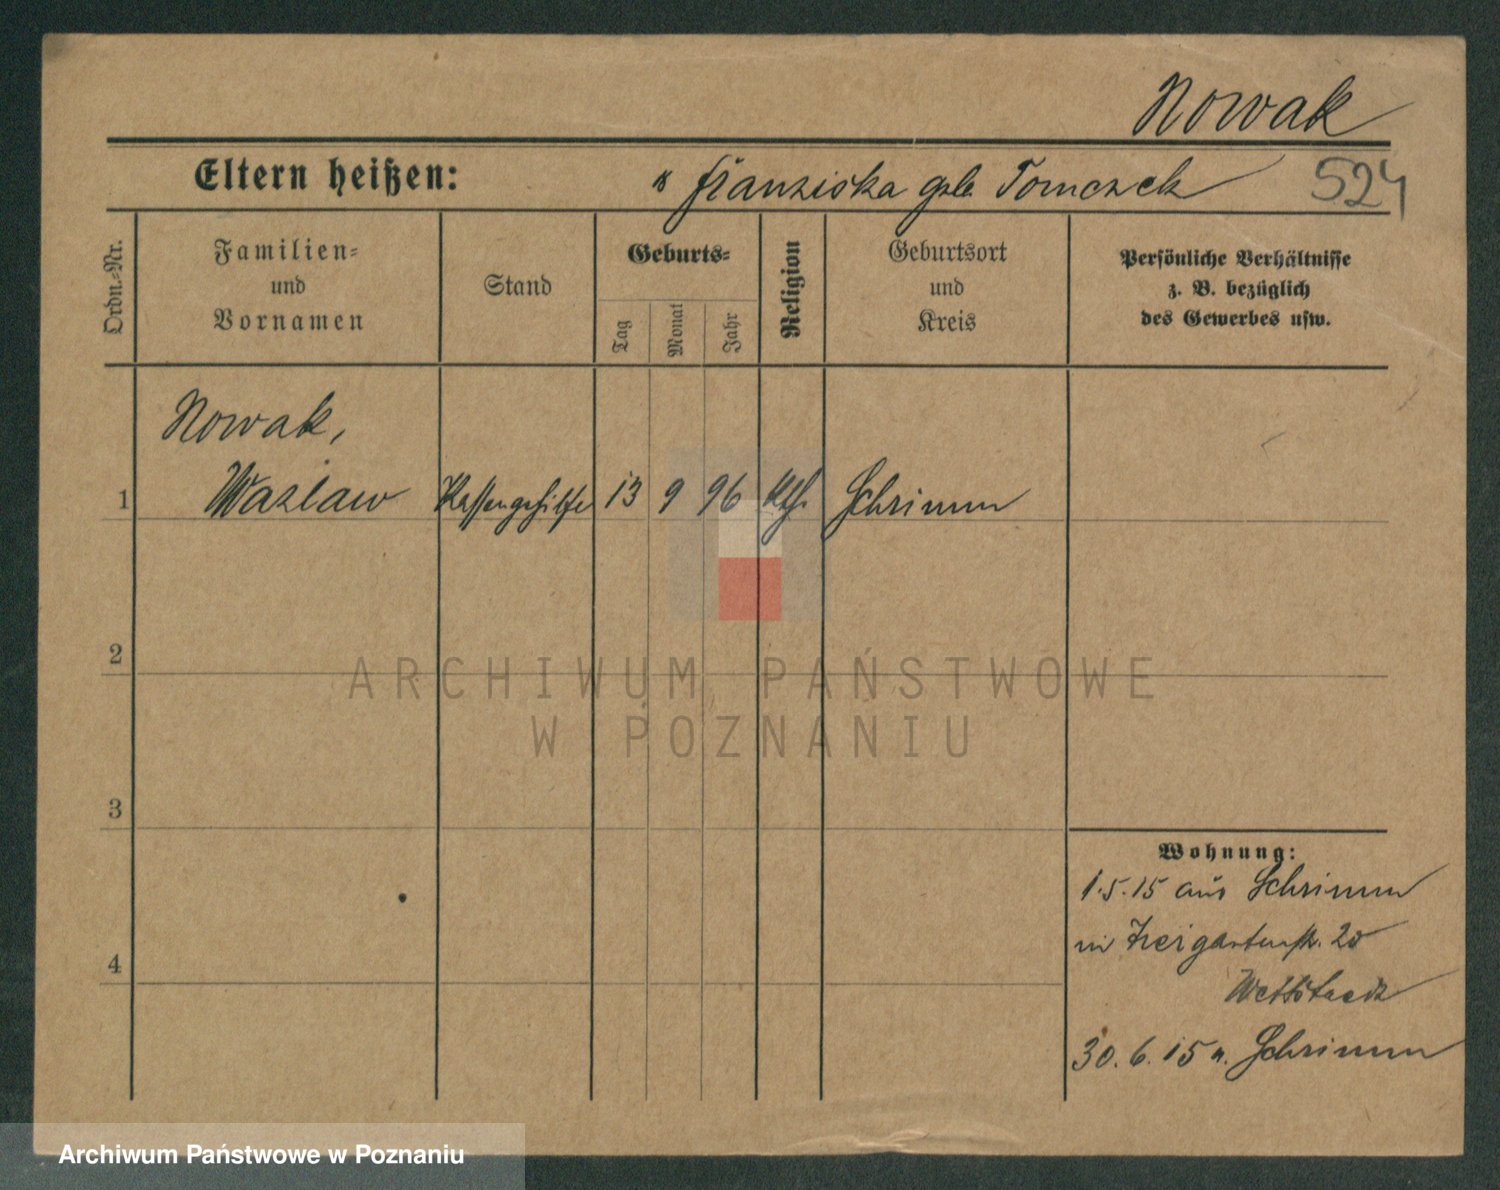 Nowak
Eltern heißen: Franziska geb. Tomczek
524
Ordn.-Nr.
Familien-
und
Vornamen
Stand
Geburts-
Tag
Monat
Jahr
Religion
Geburtsort
und
Kreis
Persönliche Verhältnisse
z. B. bezüglich
des Gewerbes usw.
Nowak,
1 Wazlaw Kassengehilfe 13 9 96 kth. Schrimm
2
3
4
Wohnung:
1.5.15 aus Schrimm
in Freigartenstr. 20
30.6.15 n. Schrimm
ARCHIWUM PAŃSTWOWE
W POZNANIU
Archiwum Państwowe w Poznaniu